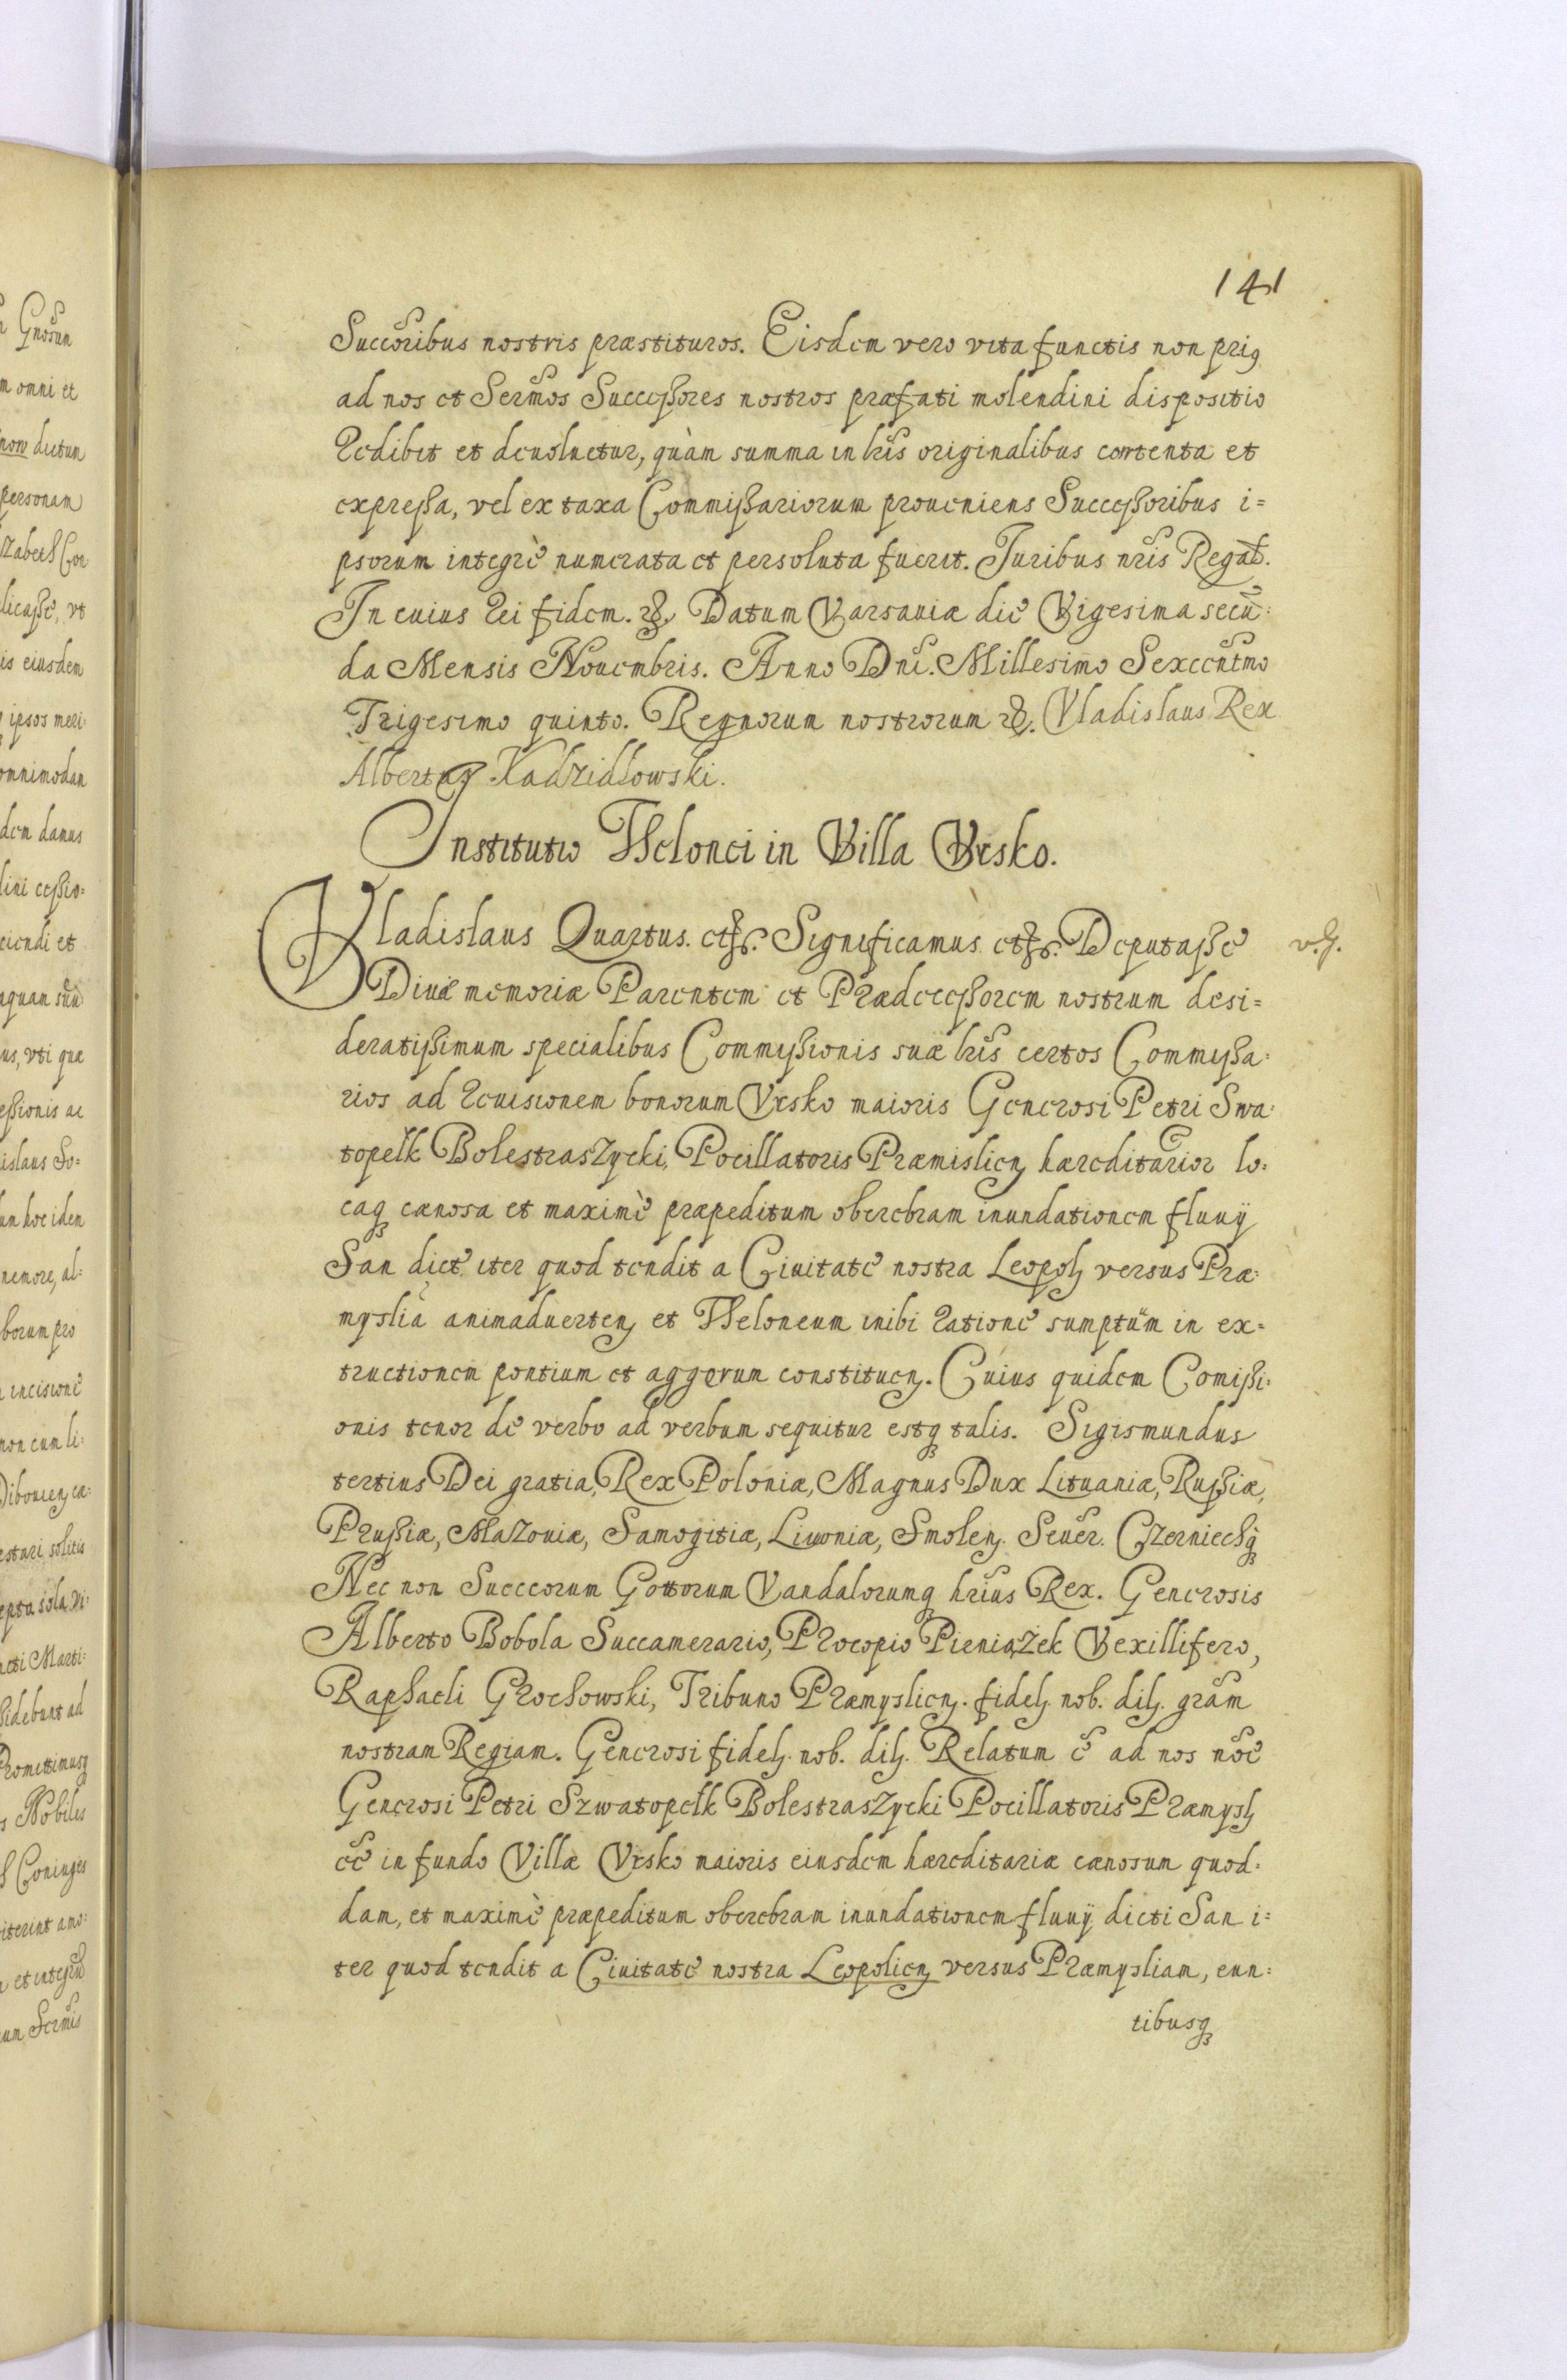 141
Succoribus nostris præstituros. Eisdem vero vita functis non priq
ad nos et Sermos Successores nostros præfati molendini dispositio
redibit et devoluetur, quàm summa in lris originalibus contenta et
expressa, vel ex taxa Commissariorum proueniens Successoribus i=
psorum integrè numerata et persoluta fuerit. Juribus nris Regal.
In cuius rei fidem. &. Datum Varsauiæ die Vigesima secū=
da Mensis Nouembris. Anno Dni. Millesimo Sexcentmo
Trigesimo quinto. Regnorum nostrorum &. Vladislaus Rex
Albertus Kadzidlowski.
Institutio Thelonei in Villa Vrsko.
Vladislaus Quartus. etc. Significamus etc. Deputasse
v.g.
Diuæ memoriæ Parentem et Prædecessorem nostrum desi=
deratissimum specialibus Commissionis suæ lris certos Commissa=
rios ad reuisionem bonorum Vrsko maioris Generosi Petri Swa=
topełk Bolestraszycki, Pocillatoris Præmislien hæreditarior lo=
caq cænosa et maximè præpeditum ob crebram inundationem fluuij
San dict iter quod tendit a Ciuitate nostra Leopol versus Præ=
myslia animaduerten et Theloneum inibi ratione sumptum in ex=
tructionem pontium et aggerum constituen. Cuius quidem Comissi=
onis tenor de verbo ad verbum sequitur estq talis. Sigismundus
tertius Dei gratia, Rex Poloniæ, Magnus Dux Lituaniæ, Russiæ,
Prussiæ, Mazouiæ, Samogitiæ, Liuoniæ, Smolen. Seuer. Czerniechq
Nec non Sueccorum Gottorum Vandalorumq hrius Rex. Generosis
Alberto Bobola Succamerario, Procopio Pieniążek Vexillifero,
Raphaeli Grochowski, Tribuno Præmyslien. fidel. nob. dil. gram
nostram Regiam. Generosi fidel. nob. dil. Relatum e ad nos noe
Generosi Petri Szwatopełk Bolestraszycki Pocillatoris Præmysl
ee in fundo Villæ Vrsko maioris eiusdem hæreditariæ cænosum quod=
dam, et maximè præpeditum ob crebram inundationem fluuij dicti San i=
ter quod tendit a Ciuitate nostra Leopolien versus Præmysliam, eun=
tibusq